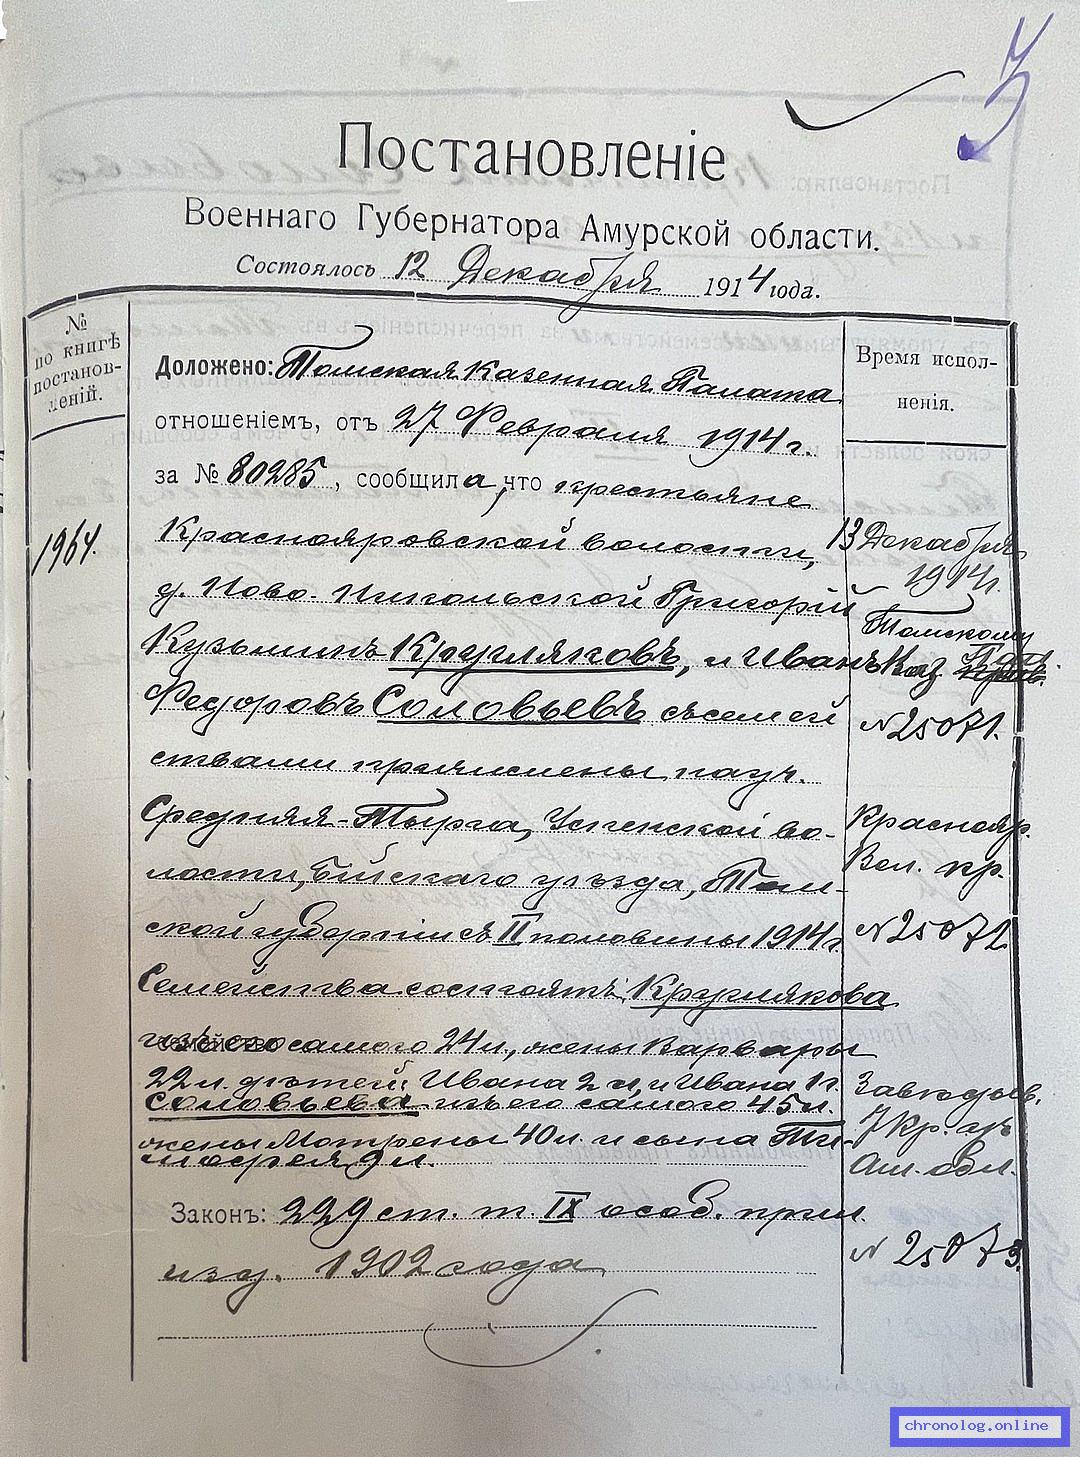 Постановленіе
Военнаго Губернатора Амурской области.
Состоялось 12 Декабря 1914 года.
№
по книгѣ
постанов-
леній.
1964.
Доложено: Томская Казенная Палата
отношеніемъ, отъ 27 Февраля 1914 г.
за № 80285, сообщила, что крестьяне
Краснояровской волости,
д. Ново-Никольской Григорій
Кузьминъ Кругляковъ, и Иванъ
Федоровъ Соловьевъ съ семей
ствами причислены къ
Средняя-Тырга, Успенской во-
лости, Бійскаго уѣзда, Том-
ской губерніи съ II половины 1914 г.
Семейства состоятъ: Круглякова
изъ его самого 24 л., жены Варвары
22 л. дѣтей: Ивана 2 л, и Ивана 1 г.
Соловьева изъ его самого 45 л.
жены Мотрены 40 л. и сына Ти-
мофея 9 л.
Законъ: 229 ст. т. IX особ. прил.
изд. 1902 года
Время испол-
ненія.
13 Декабря
1914 г.
Томскому
Каз. Пал.
№ 25071.
Краснояр.
Вол. пр.
№ 25072
Завѣдыв.
Ам. обл.
№ 25073.
3
chronolog.online